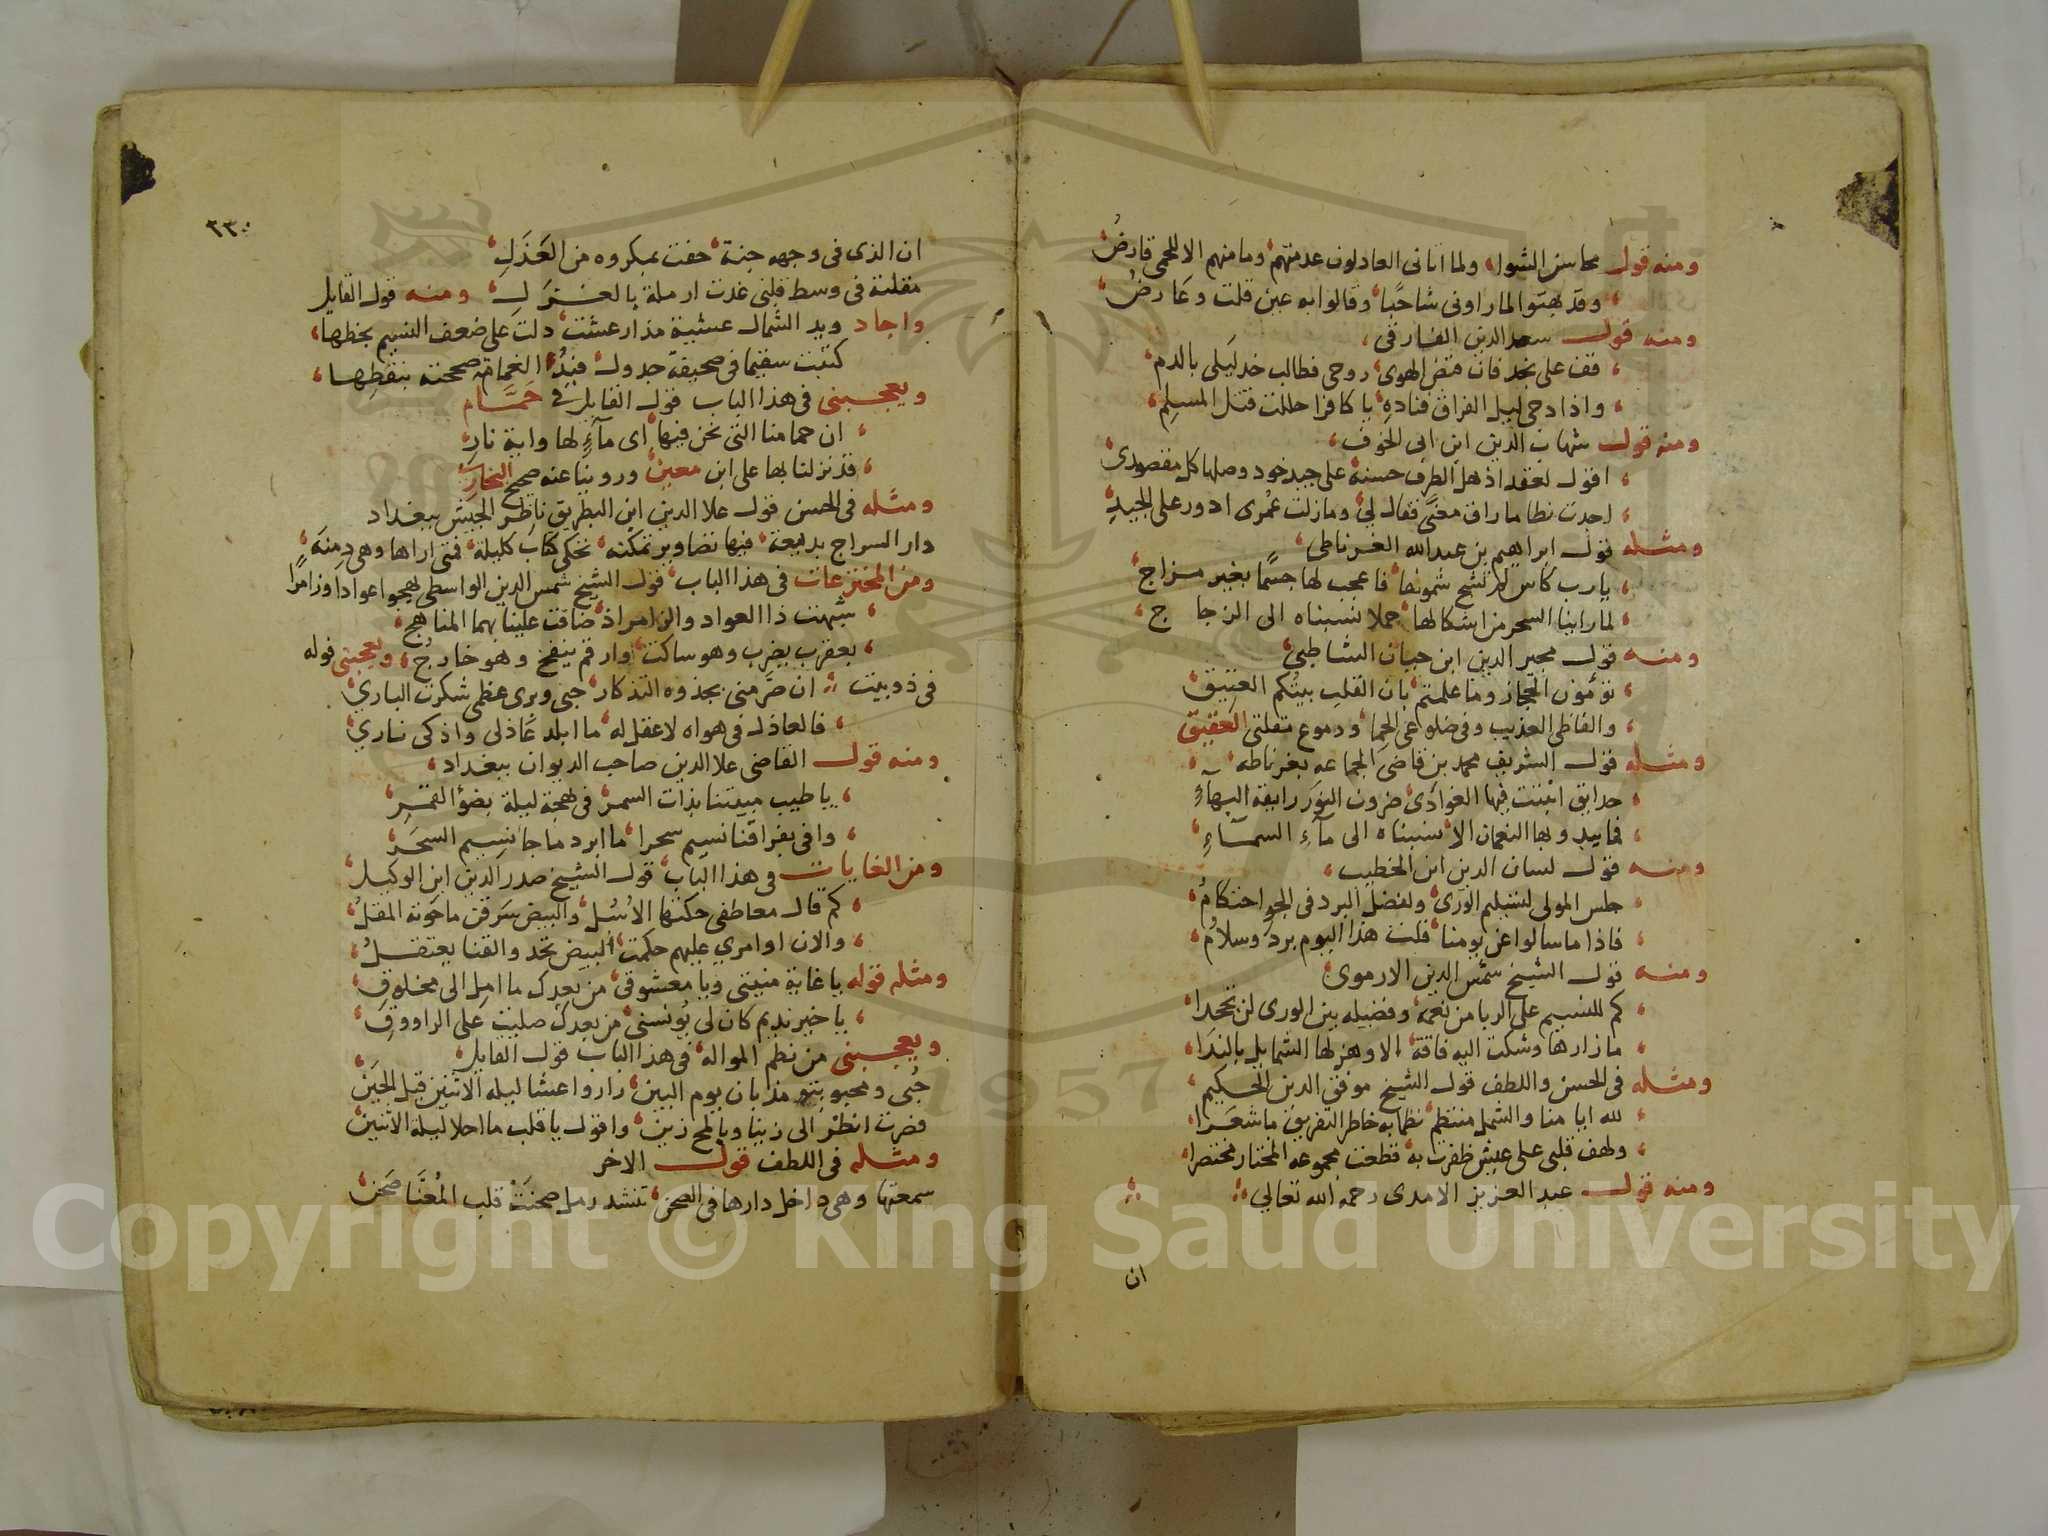 ومنه قول محاسن الشوا ولما اتانى العاذلون عدمتهم وما منهم الا للحمى قارض
وقد بهتوا لما راونى شاحبا وقالوا به عين قلت وعارض
ومنه قول سعد الدين الفارقى
قف على نجد فان قبض الهوى روحى فطالب خد ليلى بالدم
واذا دجى ليل الفراق فناده يا كافرا حللت قتل المسلم
ومنه قول شهاب الدين ابن ابى الخوف
اقول لعقد اذهل الطرف حسنه على جيد خود وصلها كل مقصودى
اجدت نظاما راق معنى فقال لى وما زلت عمرى ادور على الجيد
ومثله قول ابراهيم بن عبد الله الغرناطى
يارب كاس لم تشج شمولها فاعجب لها جسما بغير مزاج
لما راينا السحر من اشكالها جملا نسبناه الى الزجا ج
ومنه قول مجير الدين ابن حيان الشاطبى
نؤمون الحجاز وما علمتم بان القلب بيتكم العتيق
والفاظى العذيب وفى ضلوعى الحما ودموع مقلتى العقيق
ومثله قول الشريف محمد بن قاضى الجماعه بغرناطه
حدايق انبتت فيها الغوادى ضروب النور رايقة البهاء
فما يبدو بها النعمان الا نسبناه الى ماء السماء
ومنه قول لسان الدين ابن الخطيب
جلس المولى لتسليم الورى ولفضل البرد فى الجو احتكام
فاذا ما سالوا عن يومنا قلت هذا اليوم برد وسلام
ومنه قول الشيخ شمس الدين الارموى
كم للنسيم على الربا من نعمة وفضيله بين الورى لن تجحدا
ما زارها وشكت اليه فاقة الا وهز لها الشمايل بالندا
ومثله فى الحسن واللطف قول الشيخ موفق الدين الحكيم
لله ايامنا والشمل منتظم نظما به خاطر التفريق ما شعرا
ولهف قلبى على عيش ظفرت به قطعت مجموعه المختار مختصرا
ومنه قول عبد العزيز الامدى رحمه الله تعالى
ان
٢٣٠
ان الذى فى وجهه جنة حفت بمكروه من العذل
مقلته فى وسط قلبى غدت ارملة بالغزل ومنه قول القايل
واجاد ويد الشمال عشية مذ ارعشت دلت على ضعف النسيم بخطها
كتبت سقيما فى صحيفة جدول فيد الغمامة صححته بنقطها
ويعجبنى فى هذا الباب قول القايل فى حمام
ان حمامنا التى نحن فيها اى ماء لها واية نار
قد نزلنا بها على ابن معين وروينا عنه صحيح البخارى
ومثله فى الحسن قول علا الدين ابن البطريق ناظر الجيش ببغداد
دار السراج بديعة فيها تصاوير تمكنه تحكى كتاب كليلة فمتى اراها وهى دمنه
ومن المخترعات فى هذا الباب قول الشيخ شمس الدين الواسطى يهجو اعوادا وزامرا
شبهت ذا العواد والزامر اذ ضاقت علينا بهما المناهج
بعقرب يضرب وهو ساكت وارقم ينفخ وهو خارج ويعجبنى قوله
فى ذوبيت ان صرمنى بجذوه التذكار حبى وبرى عظمى شكرت البارى
فالعاذل فى هواه لا عقل له ما ابلد عاذلى واذكى نارى
ومنه قول القاضى علا الدين صاحب الديوان ببغداد
يا طيب مبيتنا بذات السمر فى بهجة ليلة بضؤ القمر
وافى بفراقنا نسيم سحرا ما ابرد ما جا نسيم السحر
ومن الغايات فى هذا الباب قول الشيخ صدر الدين ابن الوكيل
كم قال معاطفى حكتها الاسل والبيض سرقن ما حوته المقل
والان اوامرى عليهم حكمت البيض تحد والقنا يعتقل
ومثله قوله يا غاية منيتى ويا معشوقى من بعدك ما امل الى مخلوق
يا خير نديم كان لى يونسنى من بعدك صليت على الراووق
ويعجبنى من نظم المواله فى هذا الباب قول القايل
حبى ومحبوبتو مذ بان يوم البين زاروا عشا ليله الاثنين قبل الحين
فصرت انظر الى زينا ويالمح زين واقول يا قلب ما احلا ليلة الاثنين
ومثله فى اللطف قول الاخر
سمعتها وهى داخل دارها فى الصحن تنشد رمل صحنت قلب المعنا صحن
Copyright © King Saud University
1957